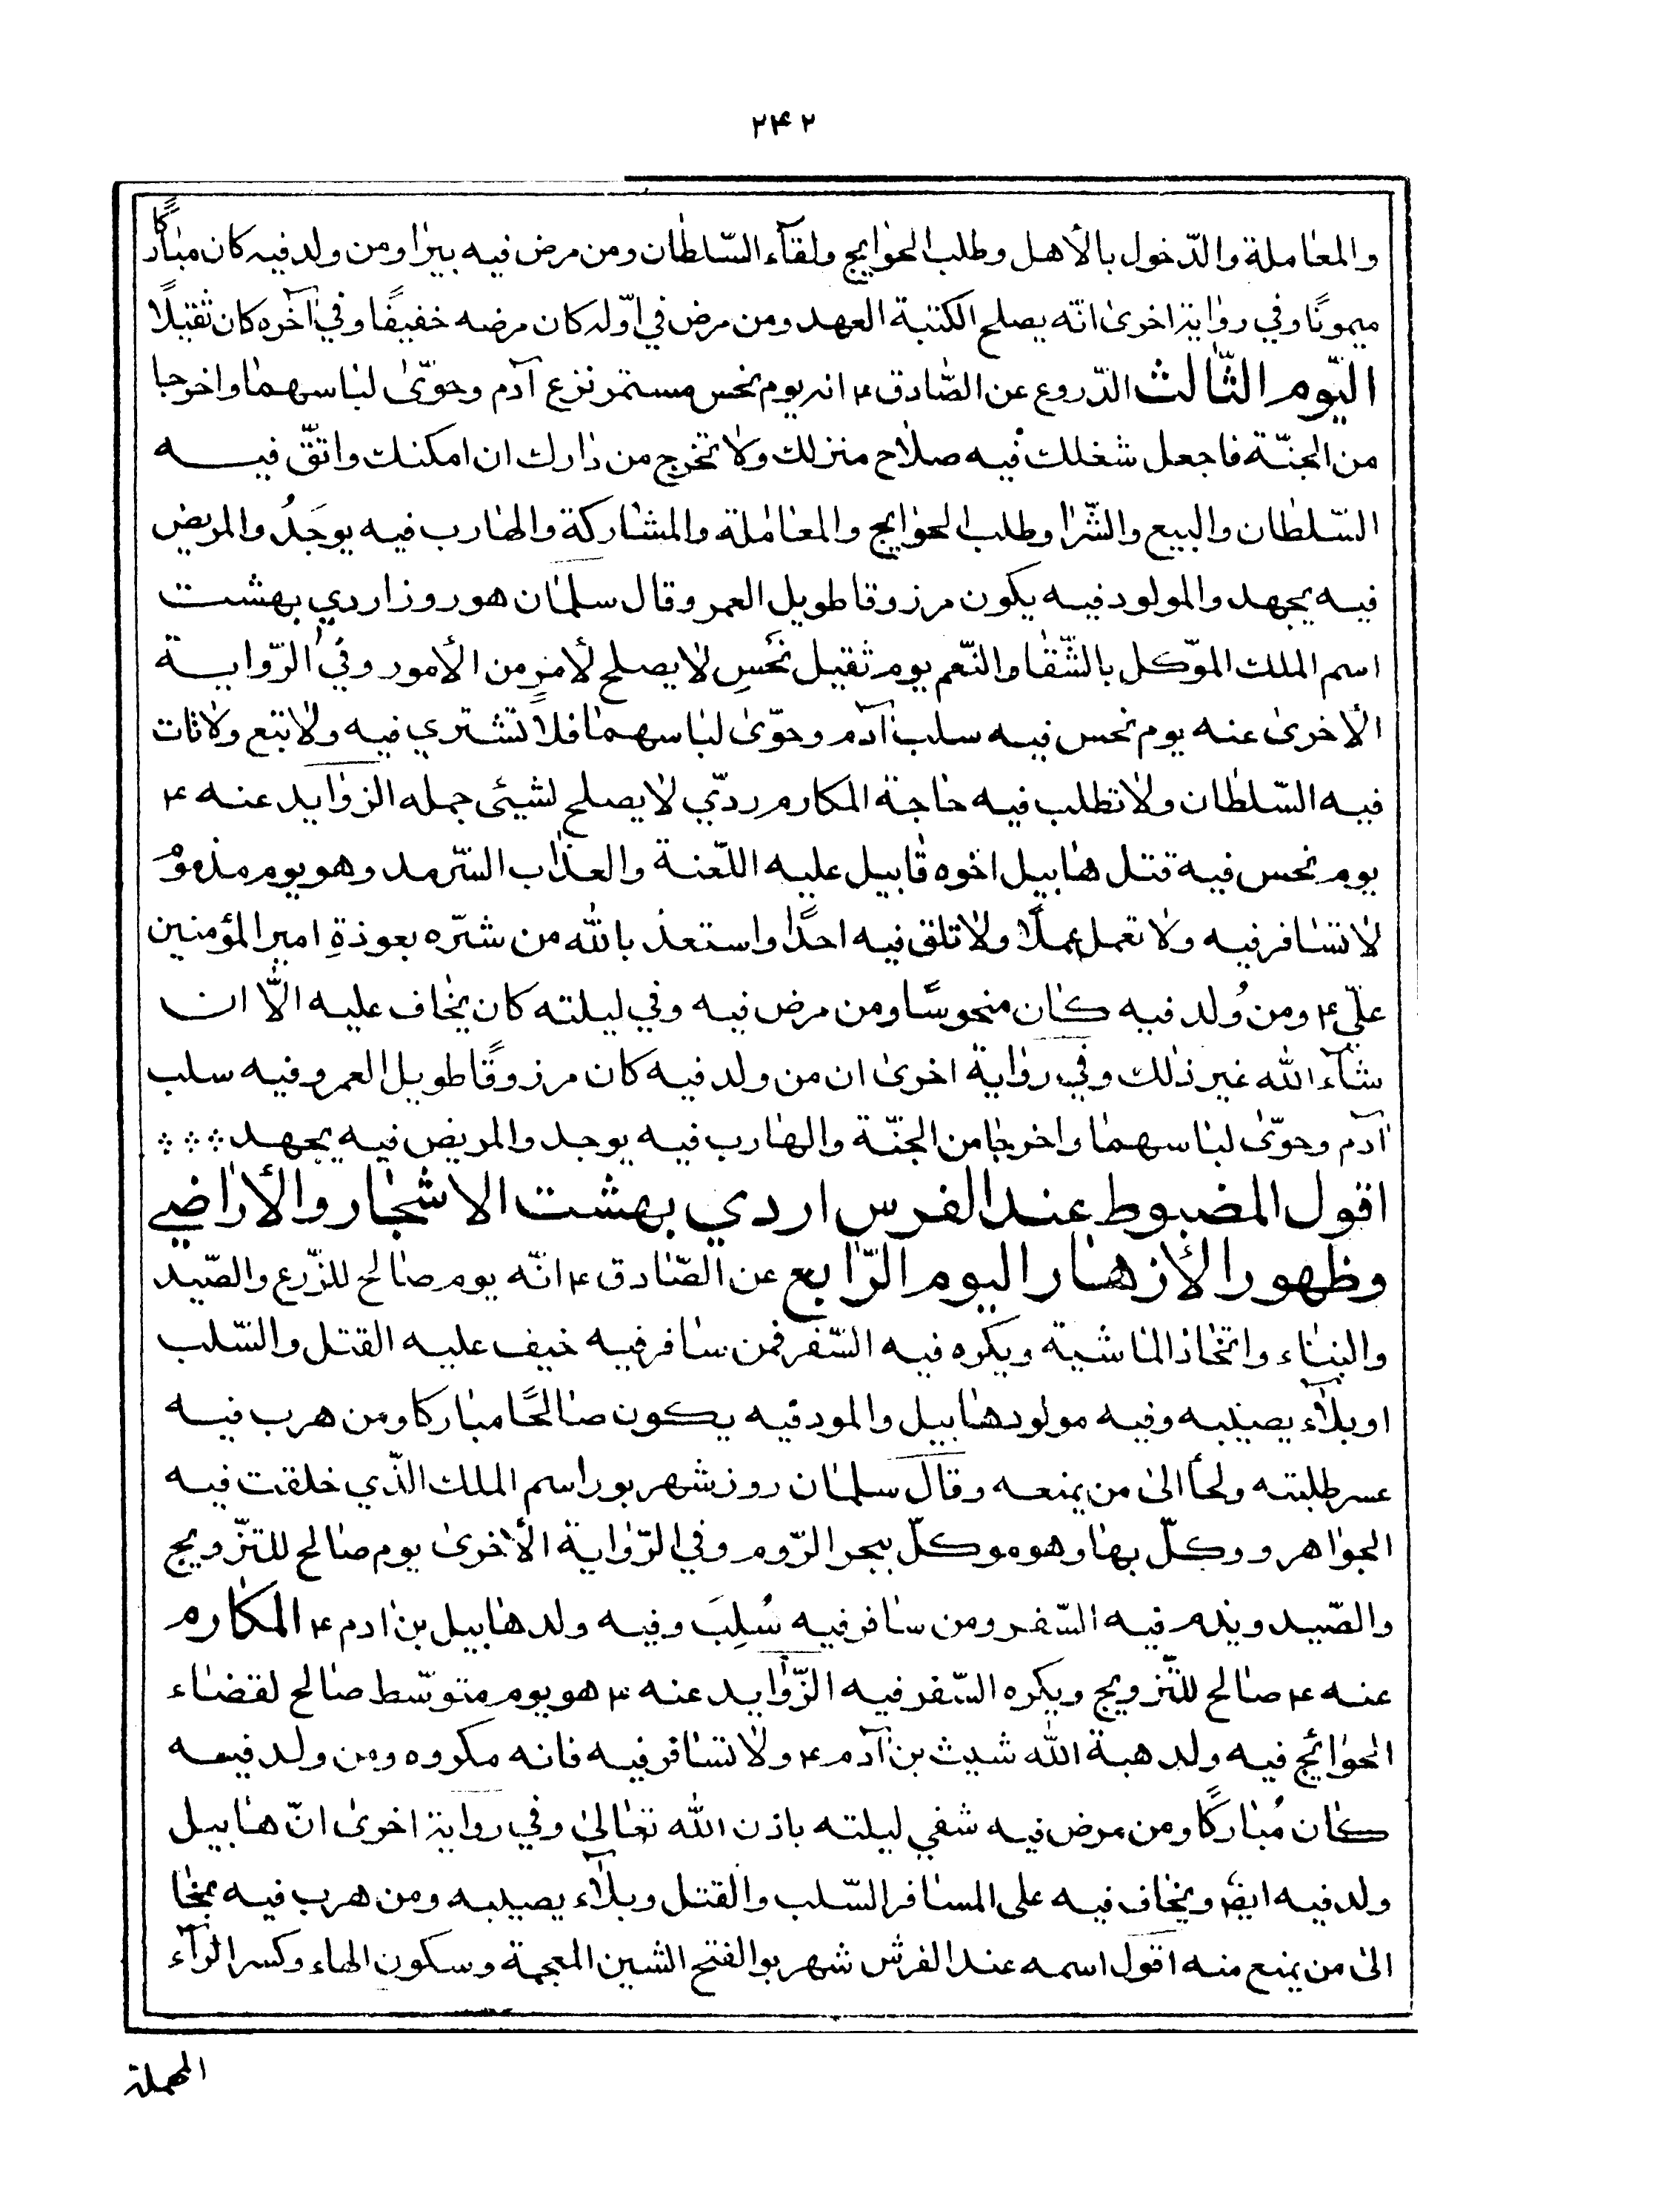 ٢۴٢
والمعاملة والدّخول بالأهل وطلب الحوايج ولقآء السّلطان ومن مرض فيه بيرا ومن ولد فيه كان مباركًا
ميمونًا وفي رواية اخرى انّه يصلح الكتبة العهد ومن مرض في اوّله كان مرضه خفيفًا وفي آخره كان ثقيلًا
اليّوم الثّالث الدّروع عن الصّادق ۴ انه يوم نحس مستمر نزع آدم وحوّى لباسهما واخرجا
من الجنّة فاجعل شغلك فيه صلاح منزلك ولا تخرج من دارك ان امكنك واتقّ فيه
السّلطان والبيع والشّرا وطلب الحوايج والمعاملة والمشاركة والهارب فيه يوجَدُ والمريض
فيه يجهد والمولود فيه يكون مرزوقا طويل العمر وقال سلمان هو روز اردي بهشت
اسم الملك الموّكل بالشّقا والنّعم يوم ثقيل نَحس لا يصلح لأمرٍ من الأمور وفي الرّواية
الأخرى عنه يوم نحس فيه سلب آدم وحوّى لباسهما فلا تشتري فيه ولا تبع ولا تات
فيه السّلطان ولا تطلب فيه حاجة المكارم ردّي لا يصلح لشيئ جمله الزوايد عنه ۴
يوم نحس فيه قتل هابيل اخوه قابيل عليه اللّعنة والعذاب السّرمد وهو يوم مذموْم
لا تسافر فيه ولا تعمل عملًا ولا تلق فيه احدًا واستعذ بالله من شرّه بعوذةِ امير المؤمنين
عليّ ۴ ومن وُلد فيه كان منحوسًا ومن مرض فيه وفي ليلته كان يخاف عليه الّا ان
شآء الله غير ذلك وفي رواية اخرى ان من ولد فيه كان مرزوقًا طويل العمر وفيه سلب
آدم وحوّى لباسهما واخرجا من الجنّة والهارب فيه يوجد والمريض فيه يجهد ∴ ∴
اقول المضبوط عند الفرس اردي بهشت الاشجار والأراضي
وظهور الأزهار اليوم الرّابع عن الصّادق ۴ انّه يوم صالح للزّرع والصّيد
والبناء واتخاذ الماشية ويكره فيه السّفر فمن سافر فيه خيف عليه القتل والسّلب
او بلآء يصيبه وفيه مولود هابيل والمود فيه يكون صالحًا مباركا ومن هرب فيه
عسر طلبته ولجأ الى من يمنعه وقال سلمان روز شهر بور اسم الملك الذّي خلقت فيه
الجواهر ووكلّ بها وهو موكلّ ببحر الرّوم وفي الرّواية الأخرى يوم صالح للتزّويج
والصّيد ويذم فيه السّفر ومن سافر فيه سُلِبَ وفيه ولد هابيل بن ادم ۴ المكارم
عنه ۴ صالح للتّزويج ويكره السّفر فيه الزّوايد عنه ۴ هو يوم متوسّط صالح لقضاء
الحوائج فيه ولد هبة الله شيث بن آدم ۴ ولا تسافر فيه فانه مكروه ومن ولد فيه
كان مُباركًا ومن مرض فيه شفي ليلته باذن الله تعالى وفي رواية اخرى انّ هابيل
ولد فيه ايضً ويخاف فيه على المسافر السّلب والقتل وبلآء يصيبه ومن هرب فيه بخا
الى من يمنع منه اقول اسمه عند الفرس شهر بو الفتح الشين المعجمة وسكون الهاء وكسر الرآء
المهملة